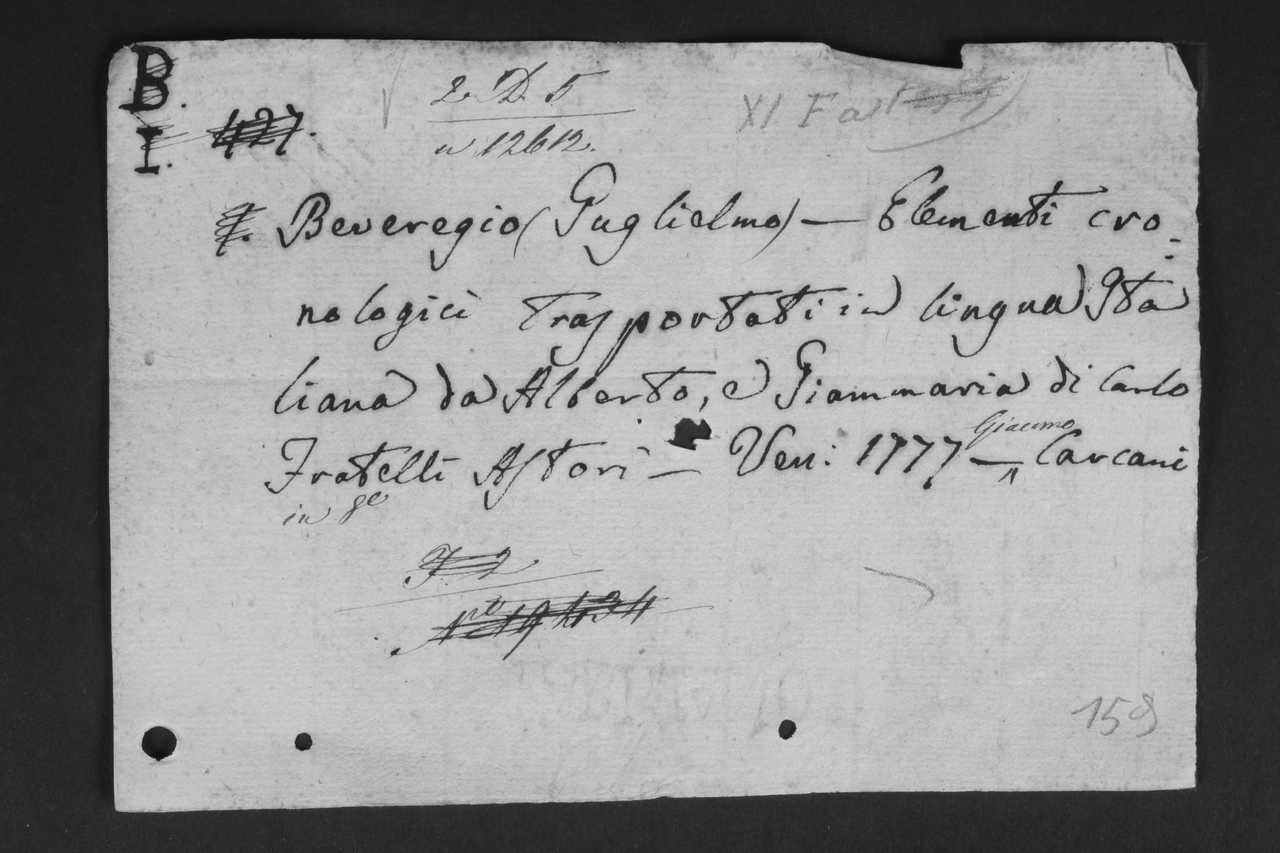 B.
I. 427.
2. D. 5
n 12612.
XI Fast
Beveregio (Guglielmo) — Elementi cro-
nologici trasportati in lingua Ita
liana da Alberto, e Giammaria di Carlo
Fratelli Astori — Ven: 1777 — Giacomo Carcani
in 8º
F. 2
Nº 19434
159